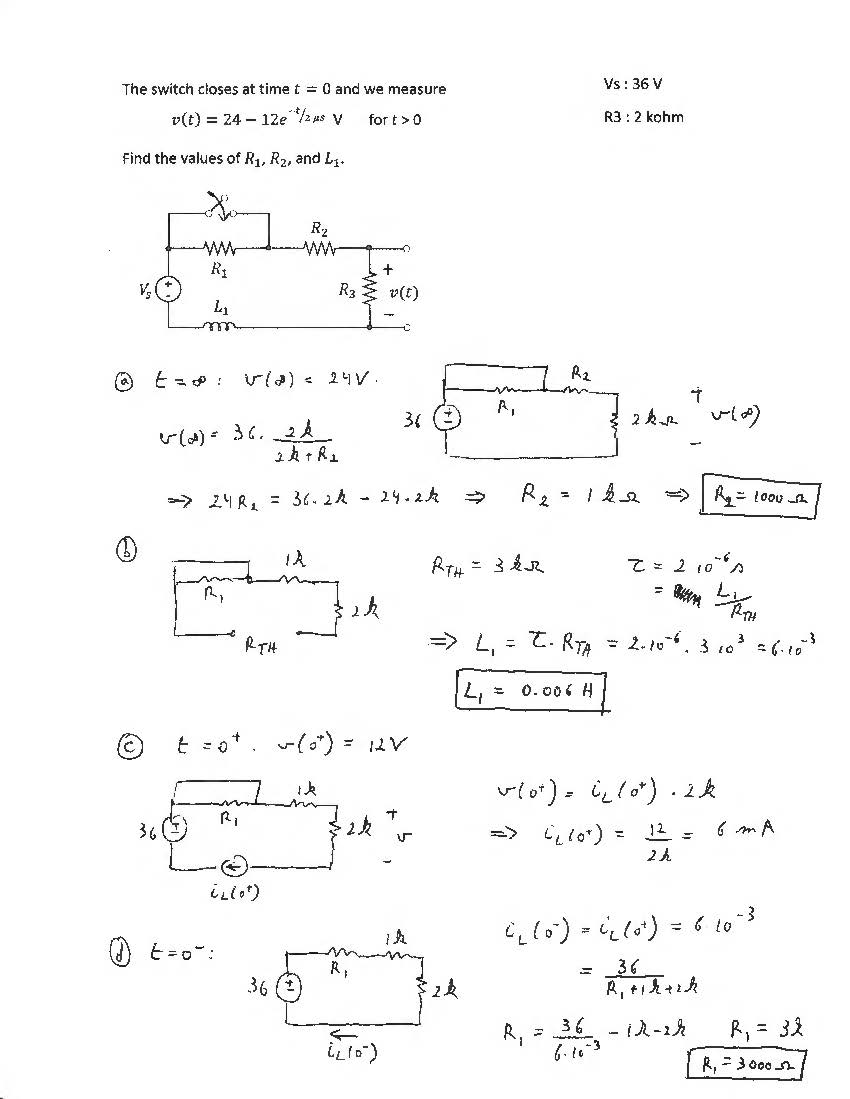 The switch closes at time t = 0 and we measure
Vs : 36 V
v(t) = 24 − 12e^-t/2 μs V for t > 0
R3 : 2 kohm
Find the values of R₁, R₂, and L₁.
R₂
R₁
Vₛ
+
−
R₃
+
v(t)
−
L₁
ⓐ t = ∞ : v(∞) = 24V.
R₂
R₁
36
+
−
2kΩ
+
v(∞)
−
v(∞) = 36. 2k / 2k + R₂
=> 24R₂ = 36.2k − 24.2k => R₂ = 1kΩ => R₂ = 1000 Ω
ⓑ
1k
R₁
2k
RTH
RTH = 3kΩ
τ = 2 10⁻⁶ s
= L₁/RTH
=> L₁ = τ. RTH = 2.10⁻⁶ . 3 10³ = 6.10⁻³
L₁ = 0.006 H
ⓒ t = 0⁺ . v(0⁺) = 12V
1k
R₁
36
+
−
2k
+
v
−
iL(0⁺)
v(0⁺) = iL(0⁺) . 2k
=> iL(0⁺) = 12/2k = 6 mA
ⓓ t = 0⁻ :
1k
R₁
36
+
−
2k
iL(0⁻)
iL(0⁻) = iL(0⁺) = 6 10⁻³
= 36 / R₁ + 1k + 2k
R₁ = 36 / 6.10⁻³ − 1k − 2k R₁ = 3k
R₁ = 3000 Ω